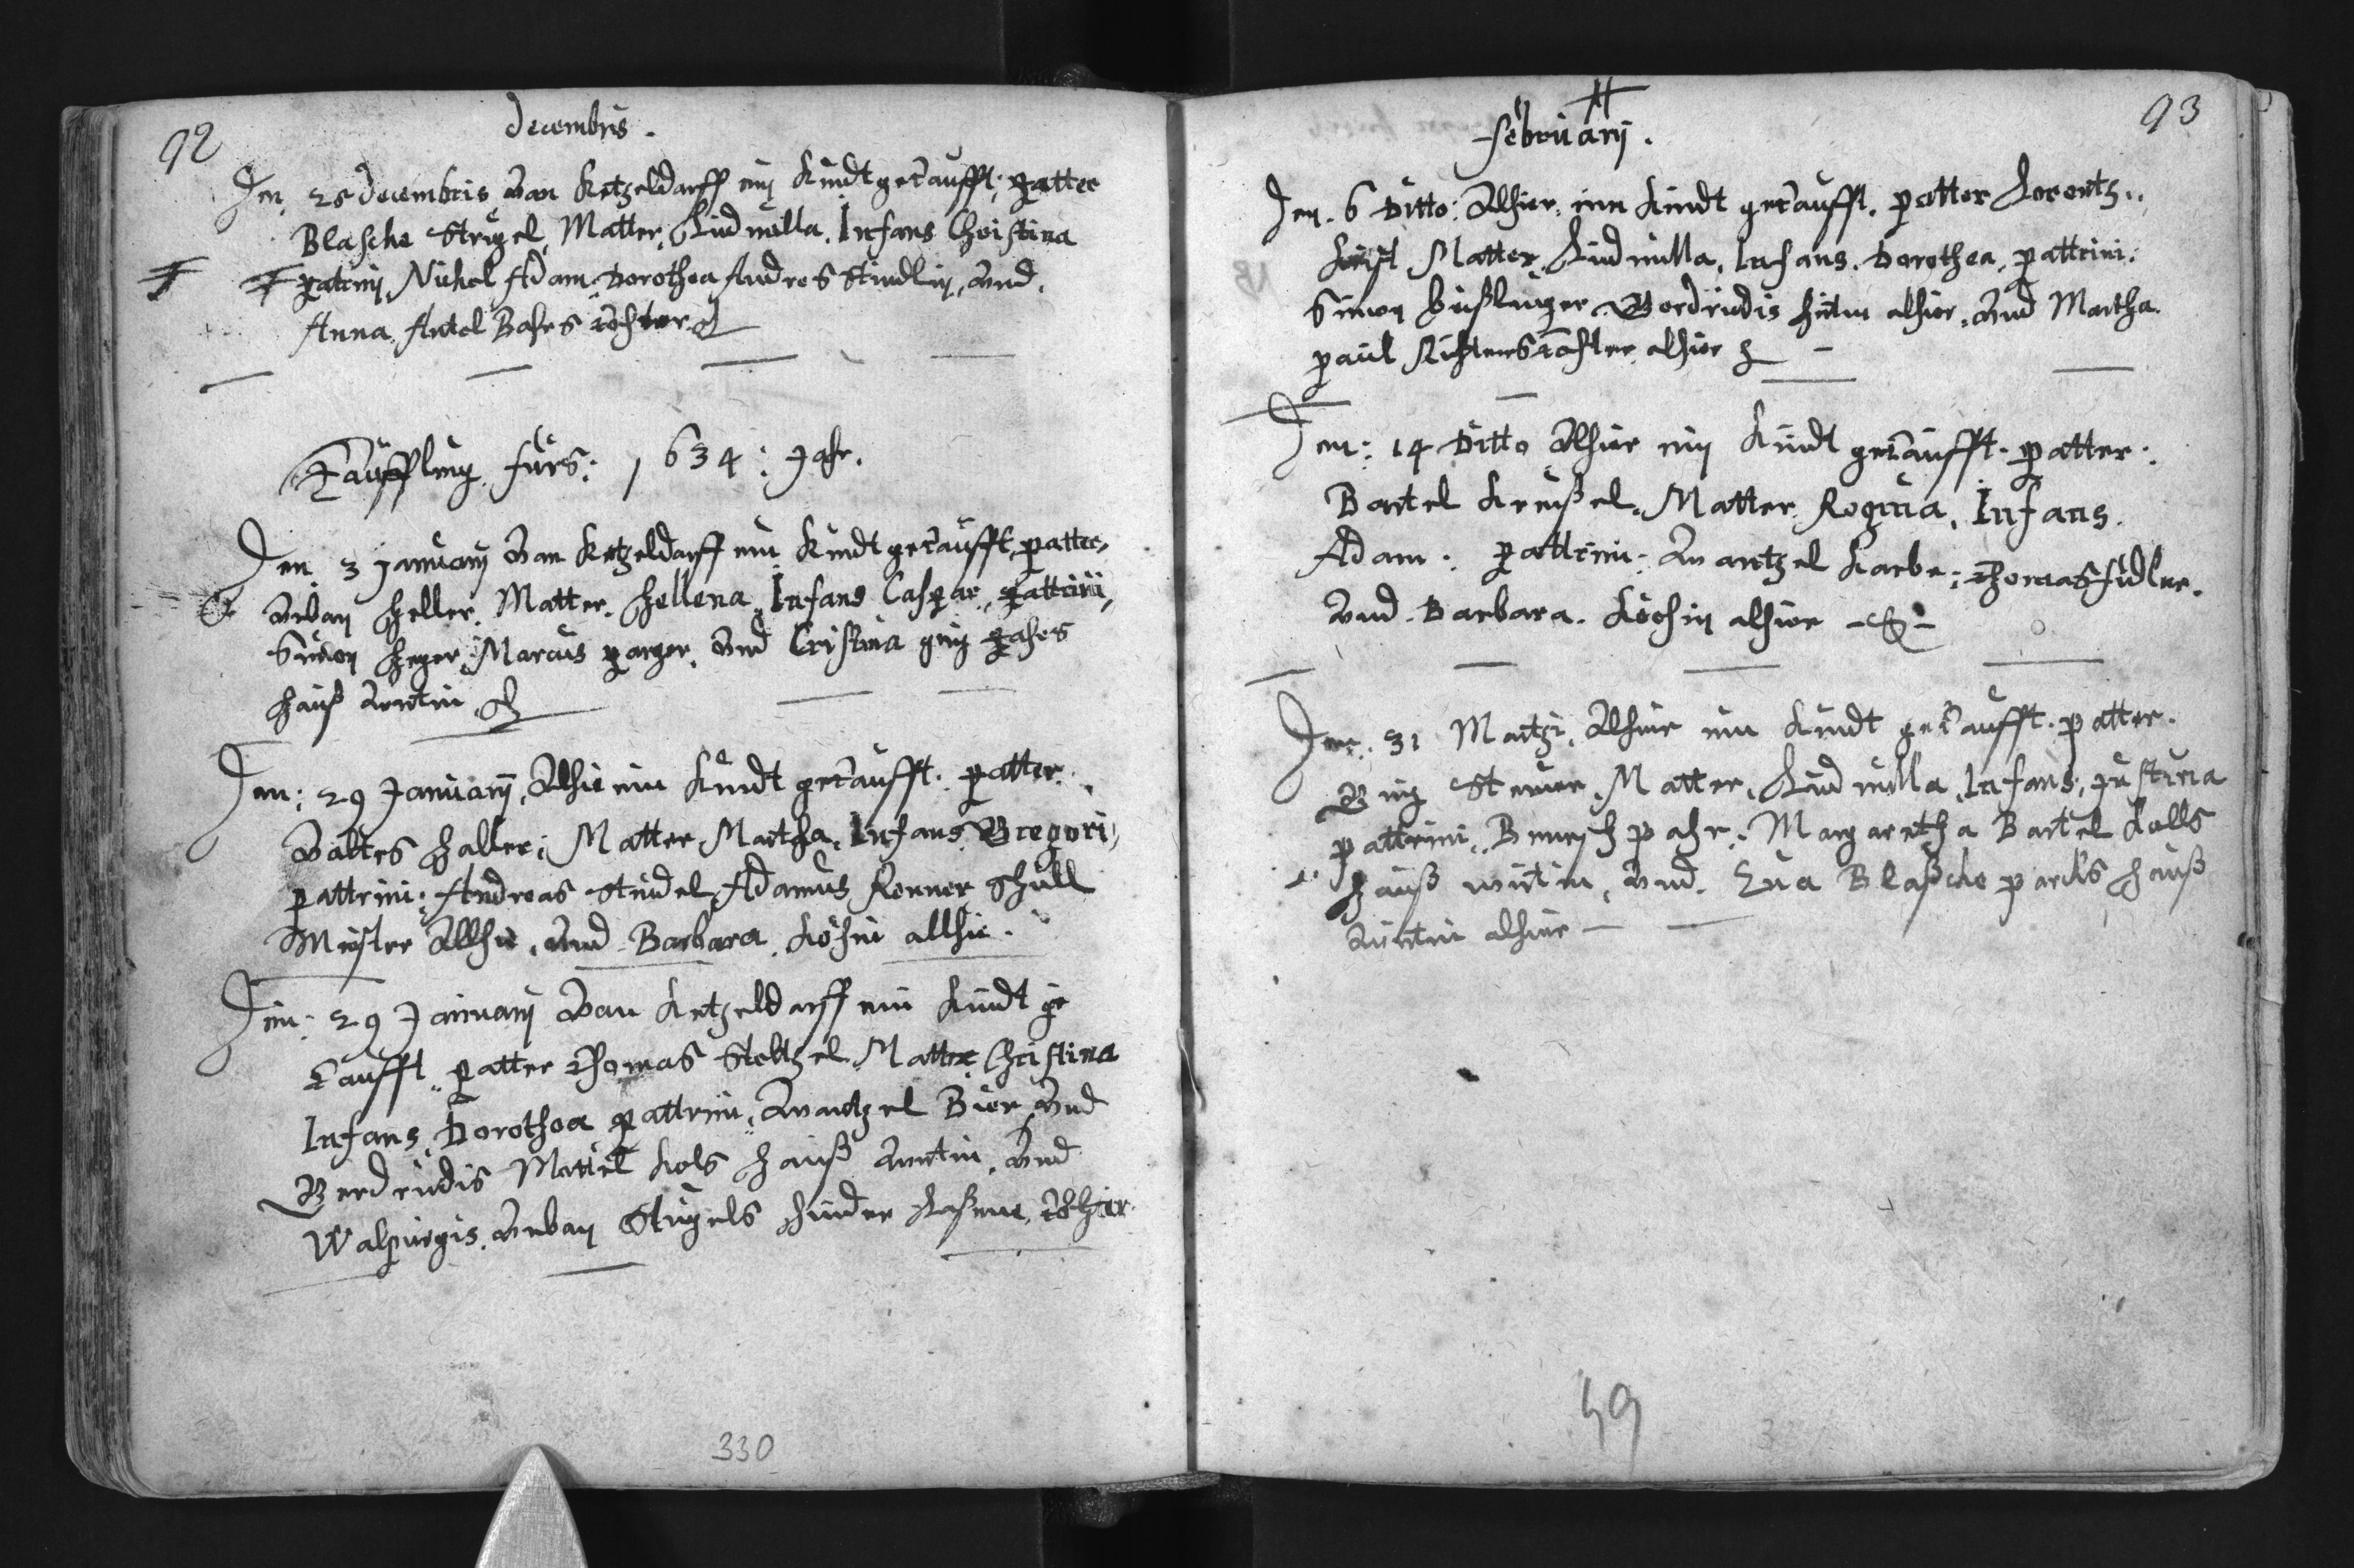 92
decembris.
Den 25 decembris Von Ketzeldorff ein Kindt getaufft, patter
Blasche Strigel, Matter, Ludmilla, Infans Christina
patrinj, Nickel Adam, Dorothea Andres Stindlin, Vnd,
Anna, Antel Bahrs tochter
Täuffling fürs: 1634: Jahr.
Den 3 Januarij Von Ketzeldorff ein Kindt getaufft, patter,
Vrban Heller, Matter, Hellena, Infans Caspar, pattrini,
Simon Heger, Marcus parger, Vnd Cristina
Hauß Vurtin
Den: 29 Januarij, Alhie ein Kindt getaufft. patter.
Valtes Haller; Matter, Martha, Infans Gregori,
pattrini; Andreas Stindel, Adamus Renner Schull
Meister Allhie, Vnd Barbara, Köchin allhie.
Den: 29 Januarij Von Ketzeldorff ein Kindt ge
taufft, patter Thomas Steltzel, Matter, Christina
Infans, Dorothea pattrini, Wentzel Bier, Vnd
Gerdrudis Mertel Kols Hauß Vurtin, Vnd
Walpurgis, Vrban Stigels Hinder tochter
330
93
februarij.
Den. 6 Ditto: Alhier, ein Kindt getaufft. patter Lorentz..
Matter, Ludmilla, Infans. Dorothea, pattrini:
Simon Gerdrudis alhier, Vnd Martha.
paul Richters tochter alhier
Den: 14 Ditto Alhier ein Kindt getaufft. patter:
Bartel Kreußel, Matter Regina, Infans.
Adam: pattrini: Wentzel Karbe; Thomas Fidler.
Vnd Barbara. Köchin alhier
Den. 31 Martzi, Alhier ein Kindt getaufft. patter.
Matter, Ludmilla, Infans, Justina
pattrini, Margaretha Bartel Kolls
Hauß wirtin, Vnd. Eua Blasche parcks Hauß
Vurtin alhier
49